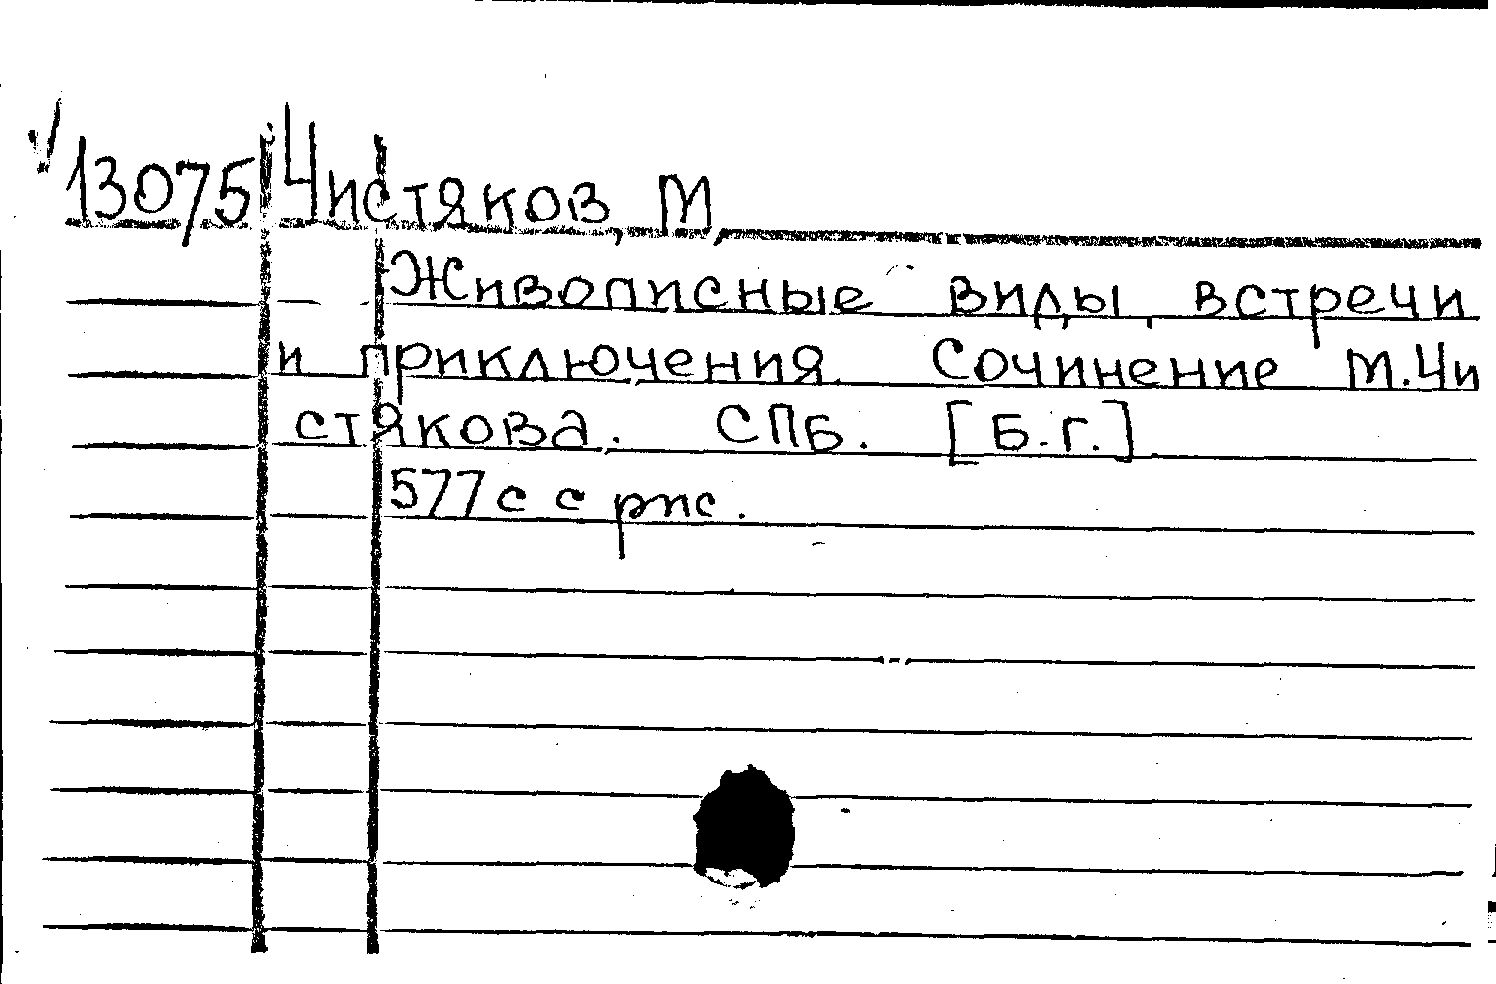 13075 Чистяков, М,
Живописные виды, встречи
и приключения. Сочинение М.Чи
стякова. СПБ. [Б.г.]
577 с с рис.